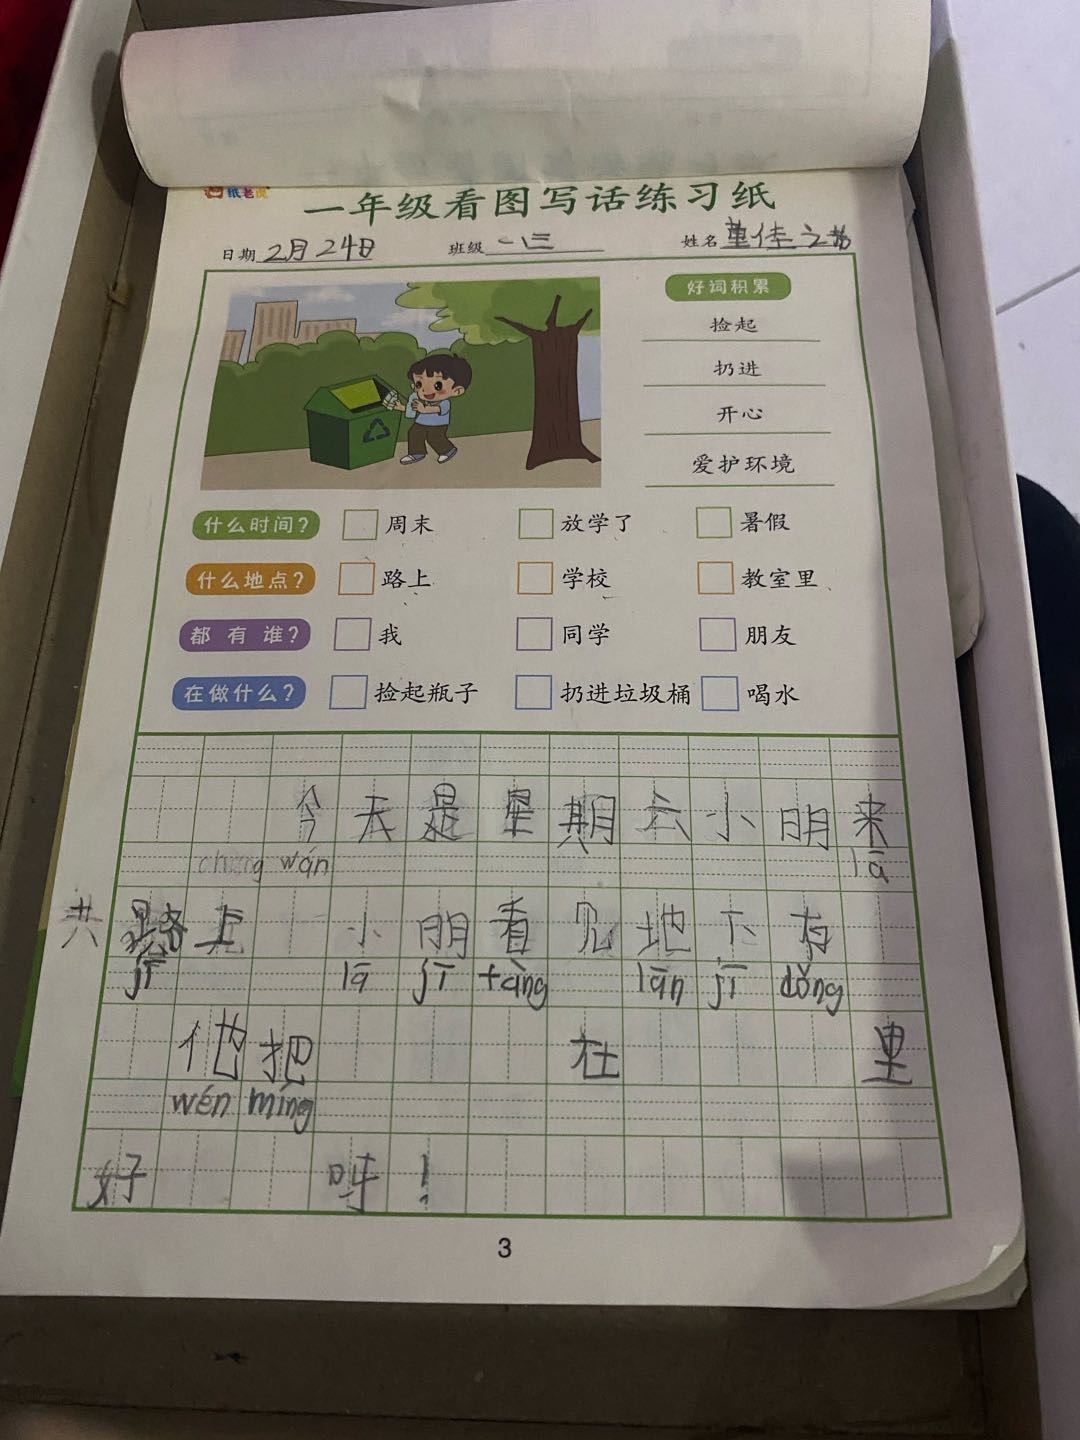 纸老虎
一年级看图写话练习纸
日期 2月24日 班级 一(三 姓名 董佳
好词积累
捡起
扔进
开心
爱护环境
什么时间? 周末 放学了 暑假
什么地点? 路上 学校 教室里
都有谁? 我 同学 朋友
在做什么? 捡起瓶子 扔进垃圾桶 喝水
今天是星期 小明来
chōng wán lā
共 路上 小朋看见地下有
jī lā jī tǒng lān jī dǒng
他把 在 里
wén míng
好 呀!
3